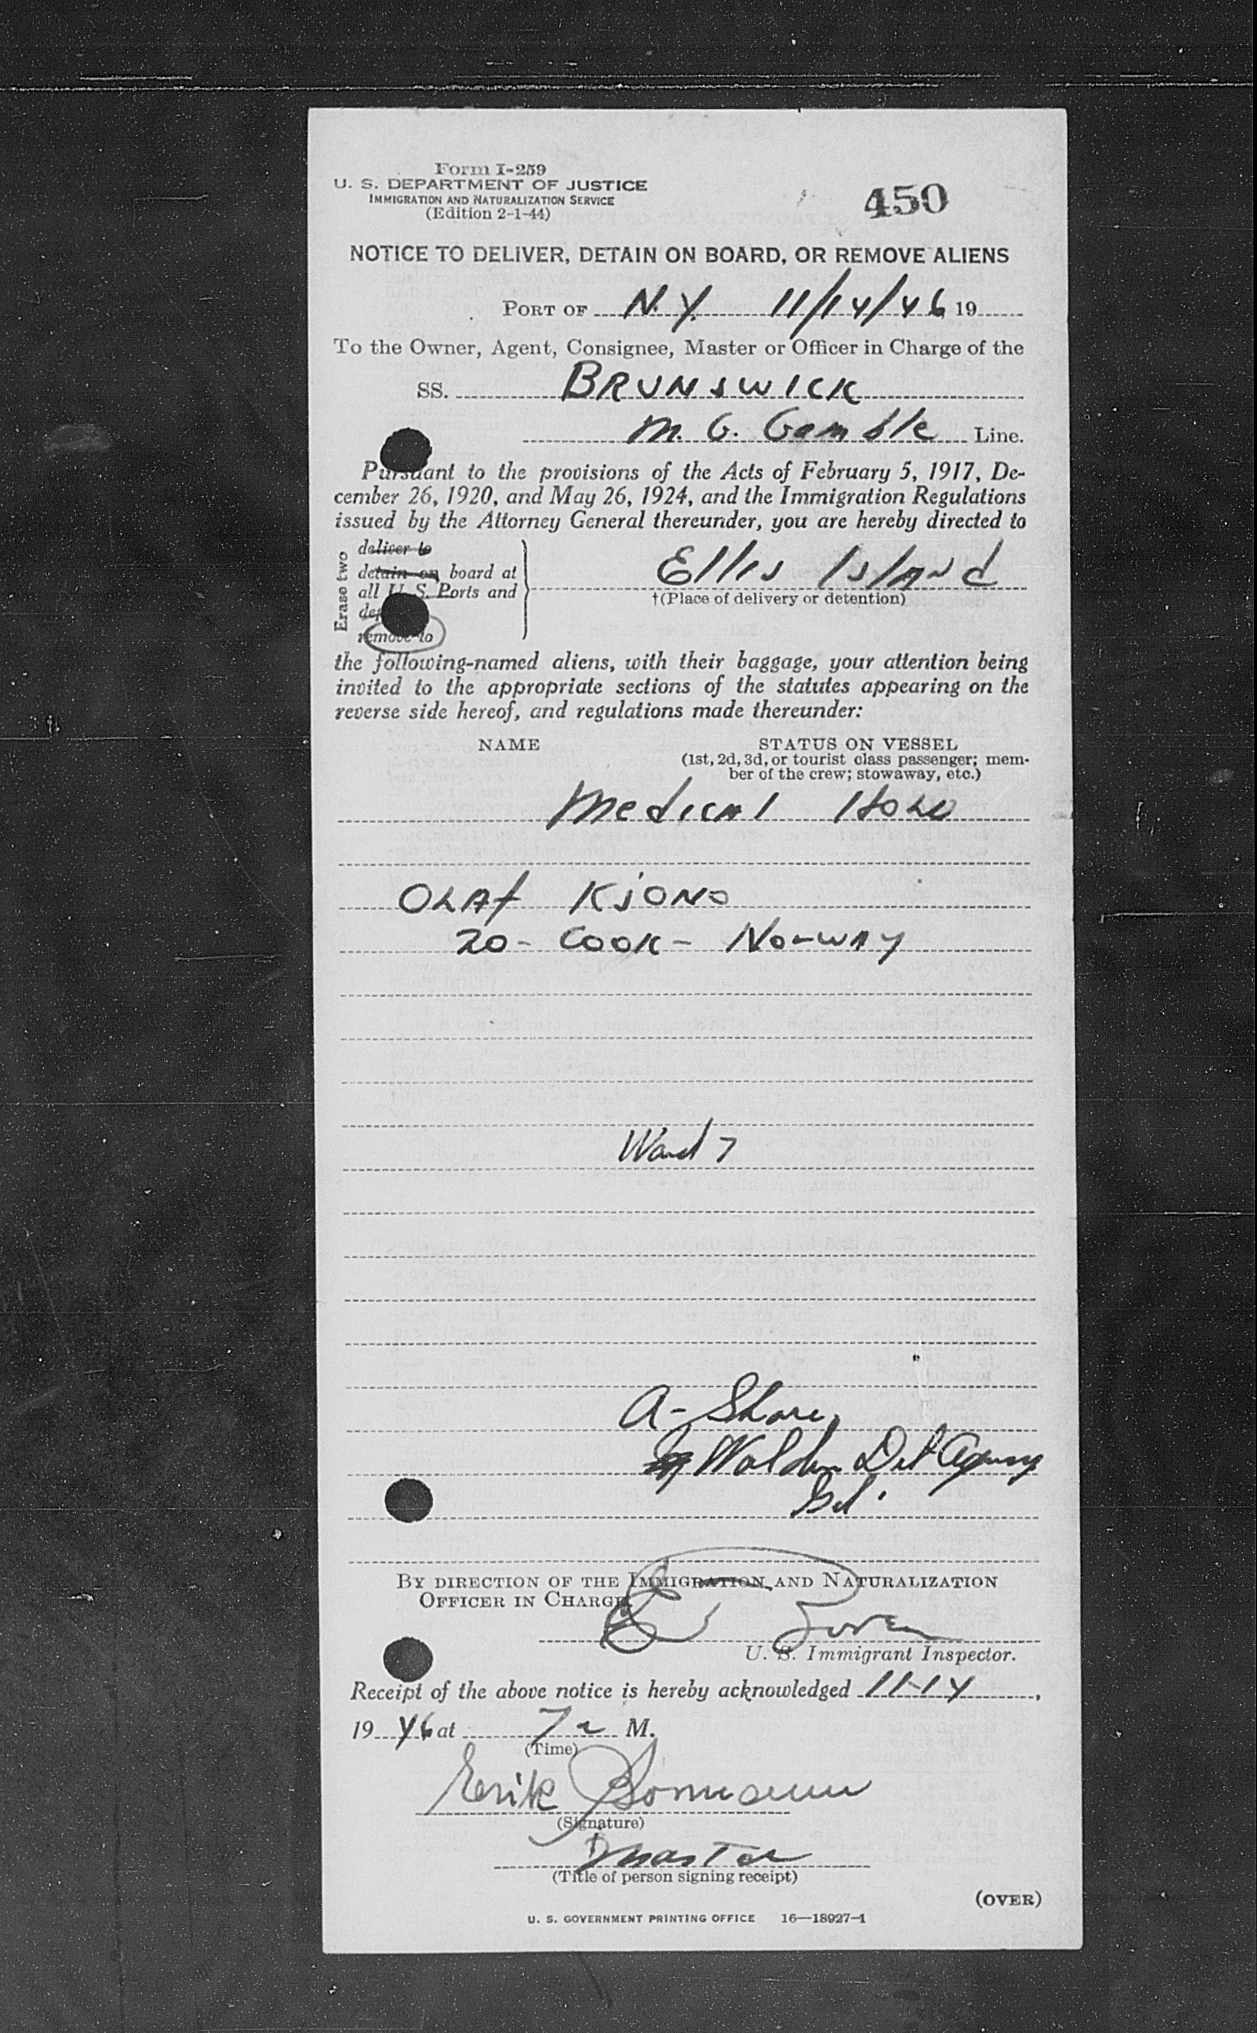 Form I-259
U. S. DEPARTMENT OF JUSTICE
IMMIGRATION AND NATURALIZATION SERVICE
(Edition 2-1-44)
450
NOTICE TO DELIVER, DETAIN ON BOARD, OR REMOVE ALIENS
PORT OF N.Y. 11/14/46 19
To the Owner, Agent, Consignee, Master or Officer in Charge of the
SS. BRUNSWICK
M. G. Gamble Line.
Pursuant to the provisions of the Acts of February 5, 1917, De-
cember 26, 1920, and May 26, 1924, and the Immigration Regulations
issued by the Attorney General thereunder, you are hereby directed to
Erase two
deliver to
detain on board at
all U. S. Ports and
remove to
Ellis Island
†(Place of delivery or detention)
the following-named aliens, with their baggage, your attention being
invited to the appropriate sections of the statutes appearing on the
reverse side hereof, and regulations made thereunder:
NAME
STATUS ON VESSEL
(1st, 2d, 3d, or tourist class passenger; mem-
ber of the crew; stowaway, etc.)
Medical Hold
OLAf KjONO
20 - COOK - Norway
Ward 7
A - Shore
Det Agency
BY DIRECTION OF THE IMMIGRATION AND NATURALIZATION
OFFICER IN CHARGE
U. S. Immigrant Inspector.
Receipt of the above notice is hereby acknowledged 11-14,
1946 at 7 a M.
(Time)
Erik
(Signature)
Master
(Title of person signing receipt)
(OVER)
U. S. GOVERNMENT PRINTING OFFICE 16—18927-1